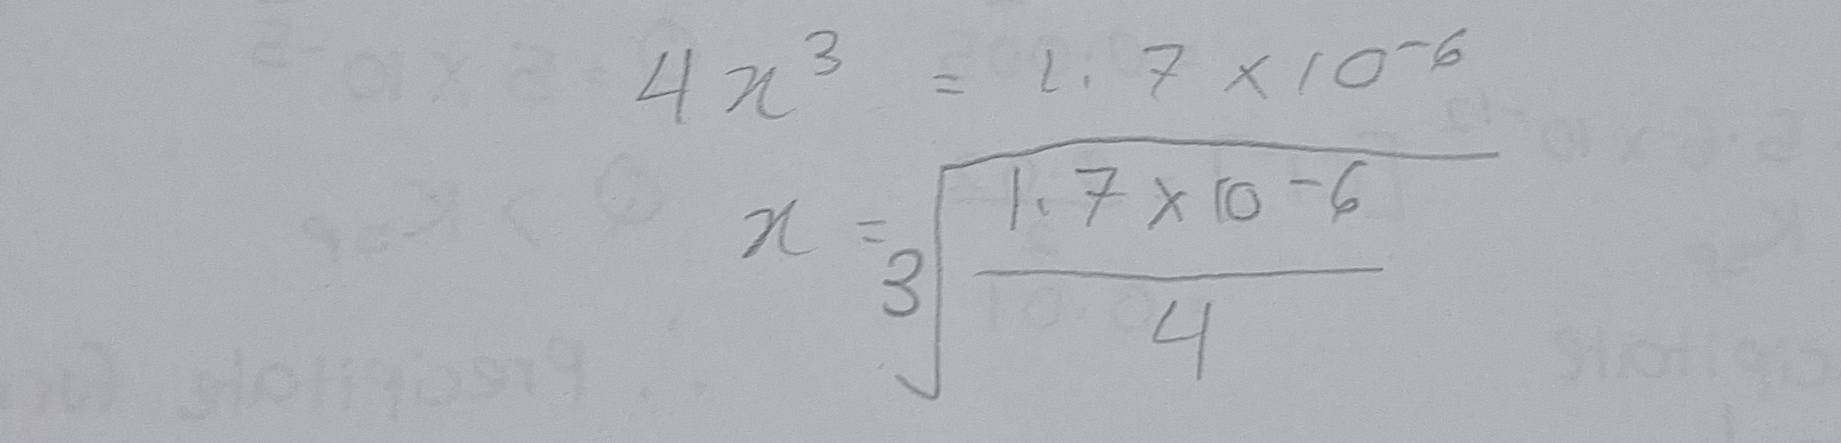 4x³ = 1.7 × 10⁻⁶
x = ∛(1.7 × 10⁻⁶ / 4)